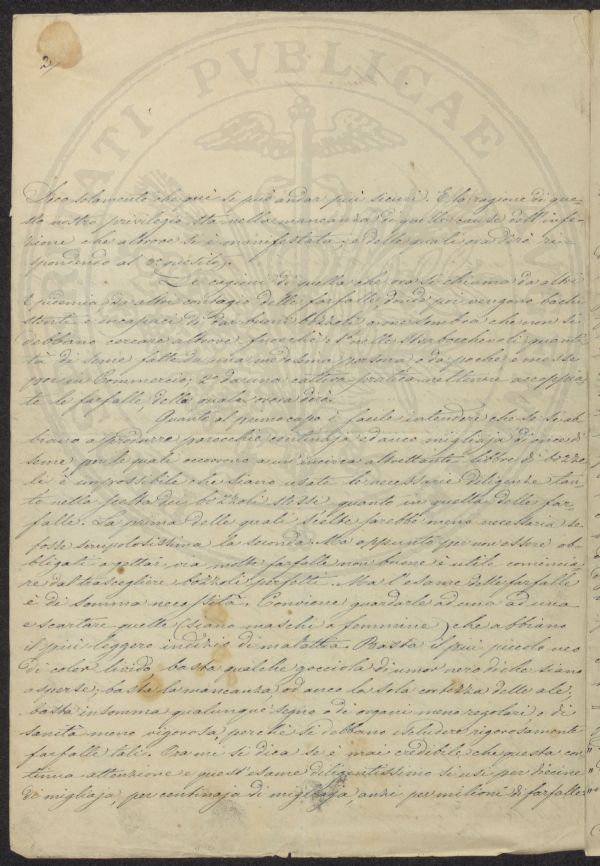 2/
PUBLICAE
Dico solamente che qui si può andar più sicuri. E la ragione di que-
sto nostro privilegio sta nella mancanza di quelle cause dell'infe-
zione che altrove si è manifestata, e delle quali ora dirò ri-
spondendo al 2° quesito.
Le cagioni di quella che ora si chiama da altri
Epidemia da altri contagio delle farfalle, donde poi vengono bachi
stenti e incapaci di dar buoni bozzoli a me sembra che non si
debbano cercare altrove, fuorché 1° nelle strabocchevoli quanti-
tà di seme fatte da una medesima persona o da poche e messe
poi in Commercio; 2° da una cattiva pratica nel tenere accoppia-
te le farfalle, della quale ora dirò.
Quanto al primo capo è facile intendere che se si ab-
biano a produrre parecchie centinaja ed anco migliaja di once di
seme per le quali occorrono a un'incirca altrettante libbre di bozzo-
li è impossibile che siano usate le necessarie diligenze tan-
to nella scelta dei bozzoli stessi quanto in quella delle far-
falle. La prima delle quali scelte sarebbe meno necessaria se
fosse scrupolosissima la seconda. Ma appunto per non essere ob-
bligati a gettar via molte farfalle non buone è utile comincia-
re dal trascegliere bozzoli perfetti. Ma l'esame delle farfalle
è di somma necessità. Conviene guardarle ad una ad una
e scartare quelle (siano maschi o femmine) che abbiano
il più leggero indizio di malattia. Basta il più piccolo neo
di color livido basta qualche gocciola di umor nero di che siano
asperse, basta la mancanza, od anco la sola cortezza delle ale,
basta insomma qualunque segno o di organi meno regolari o di
sanità meno vigorosa, perché si debbano escludere rigorosamente
farfalle tali. Ora mi si dica se è mai credibile che questa con-
tinua attenzione e quest'esame diligentissimo si usi per diecine
di migliaja, per centinaja di migliaja, anzi per milioni di farfalle.